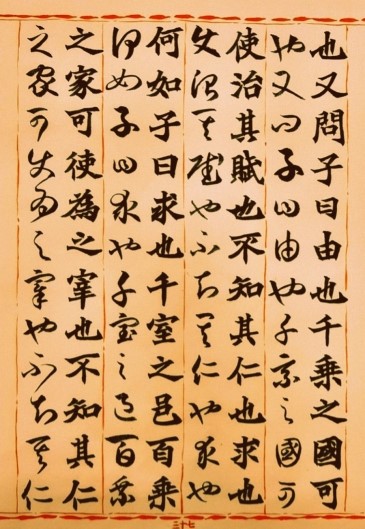 也又問子曰由也千乘之國可
也又問子曰由也千乘之國可
使治其賦也不知其仁也求也
使治其賦也不知其仁也求也
何如子曰求也千室之邑百乘
何如子曰求也千室之邑百乘
之家可使為之宰也不知其仁
之家可使為之宰也不知其仁
三十七